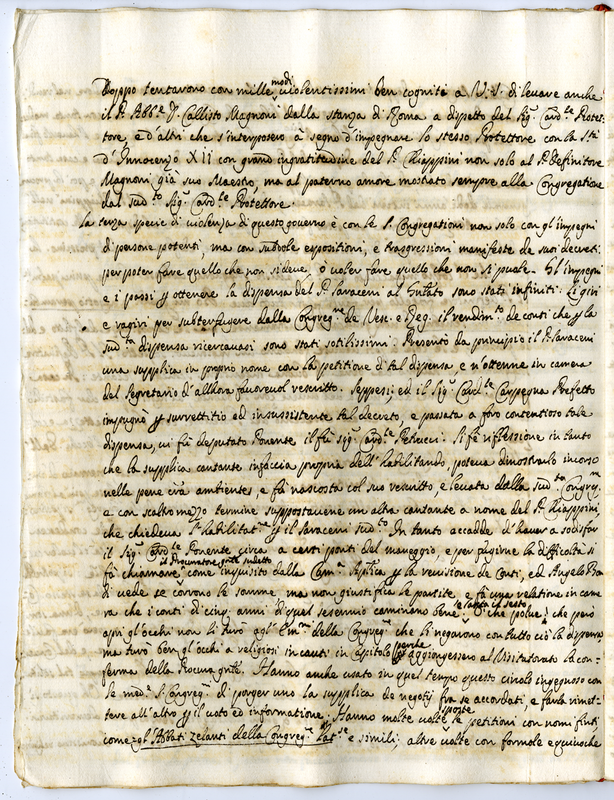 Doppo tentavono con mille modi violentissimi ben cogniti a V.S. di levare anche
il P. Abb.e D. Callisto Magnoni dalla stanza di Roma a dispetto del Sig.r Card.le Protet-
tore, e d'altri che s'interposero à segno d'impegnare lo stesso Protettore con la S.tà
d'Innocenzo XII con grand ingratitudine del P. Chiappini non solo al P. Definitore
Magnoni già suo Maestro, ma al paterno amore mostrato sempre alla Congregatione
dal sud.to Sig.r Card.le Protettore.
La terza specie di violenza di questo governo è con le S. Congregationi non solo con gl'impegni
di persone potenti, ma con subdole espositioni, e trasgressioni manifeste de suoi decreti
per poter fare quello che non si deve, ò voler fare quello che non si puole. Gl'impegni
e i passi p ottenere la dispensa del P. Saraceni al sono stati infiniti. Li giri
e ragiri per subterfugere dalla Congreg.ne de Vesc. e Reg. il rendim.to de conti che p la
sud.ta dispensa ricercavasi sono stati sotilissimi. Presentò da principio il P. Saraceni
una supplica in proprio nome con la petitione di tal dispensa e n'ottenne in camera
del Segretario d'allhora favorevol rescritto. Seppesi; ed il Sig.r Card.le Carpegna Prefetto
impugnò p surrettitio ed insussistente tal decreto, e passata a foro contentioso tale
dispensa, vi fù deputato Ponente il fù Sig.r Card.le Petrucci. Si fè riflessione in tanto
che la supplica cantante in faccia propria dell'habilitando poteva dimostrarlo incorso
nelle pene ambientes, e fù nascosta col suo rescritto, e levata dalla sud.ta Congreg.ne
e con scaltro mezzo termine suppostavene un altra cantante a nome del P. Chiappini,
che chiedeva l'habilitat.ne p il Saraceni sud.to In tanto accadde d'haver a sodisfar
il Sig.r Card.le Ponente circa a certi ponti del maneggio, e per fugirne la difficoltà si
fà chiamare il Procurator gnle sudetto come inquisito dalla Cam.a Aplica p la revisione de Conti, ed Angelo
di vede se corrono le somme ma non giustifica le partite e fà una relatione in came
ra che i conti di cinq. anni d'quel sesennio caminano bene e salta il sesto. O che polve! che però
aprì gl'occhi non li turò agl'Em.mi della Congreg.ne che li negarono con tutto ciò la dispensa
ma turò ben gl'occhi a religiosi incauti in capitolo perche aggiongessero al Visitatorato la con-
ferma della Procura gnle. Hanno anche usato in quel tempo questo circolo ingegnoso con
le med.e S. Congreg.ni d'porger uno la supplica de negotij fra se accordati, e farla rimet-
tere all'altro p il voto ed informatione; Hanno molte volte sporte le petitioni con nomi finti,
come gl'Abbati zelanti della Congreg.ne e simili; altre volte con formole equivoche